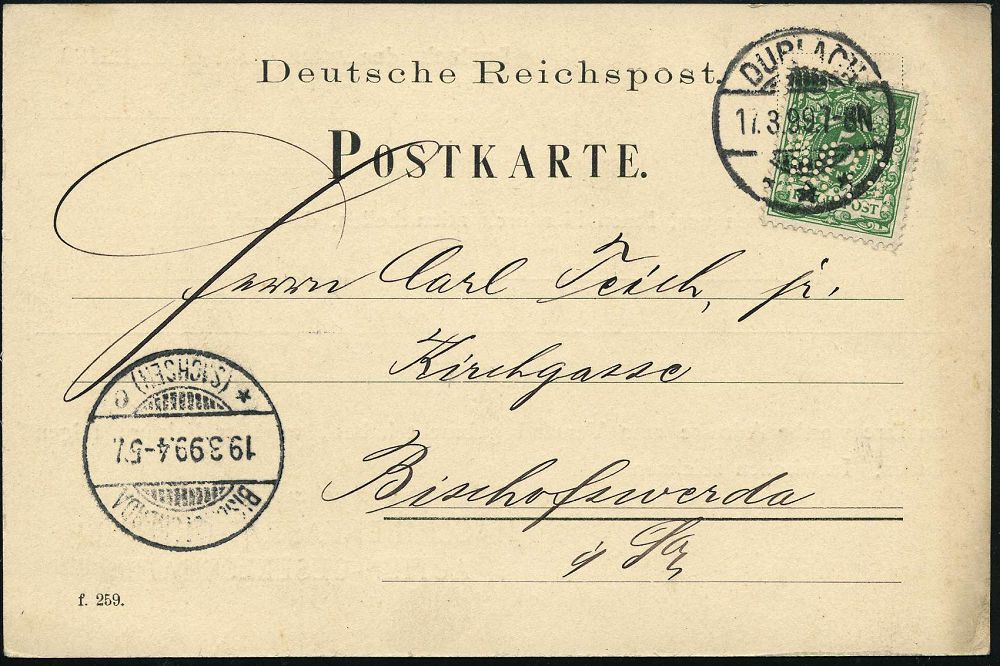 Deutsche Reichspost.
DURLACH
17.3.99.7-8N
REICHSPOST
POSTKARTE.
Herrn Carl Teich, jr.
Kirchgasse
Bischofswerda
i/Sa
BISCHOFSWERDA
19.3.99.4-5N.
* (SACHSEN) c
f. 259.